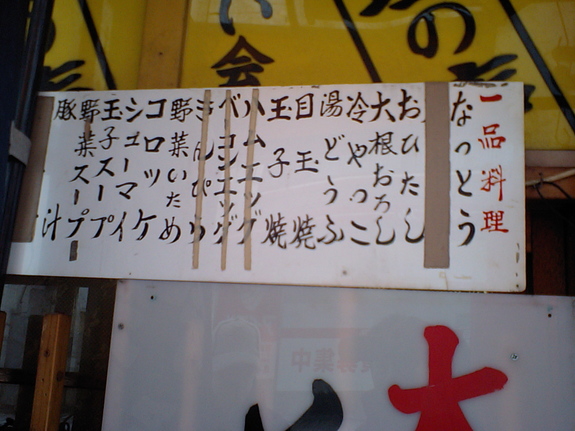 一品料理
なっとう
おひたし
大根おろし
冷やっこ
湯どうふ
目玉焼
玉子焼
ハムエッグ
ベーコンエッグ
きんぴら
野菜いため
コロッケ
シューマイ
玉子スープ
野菜スープ
豚汁
い会
の
大